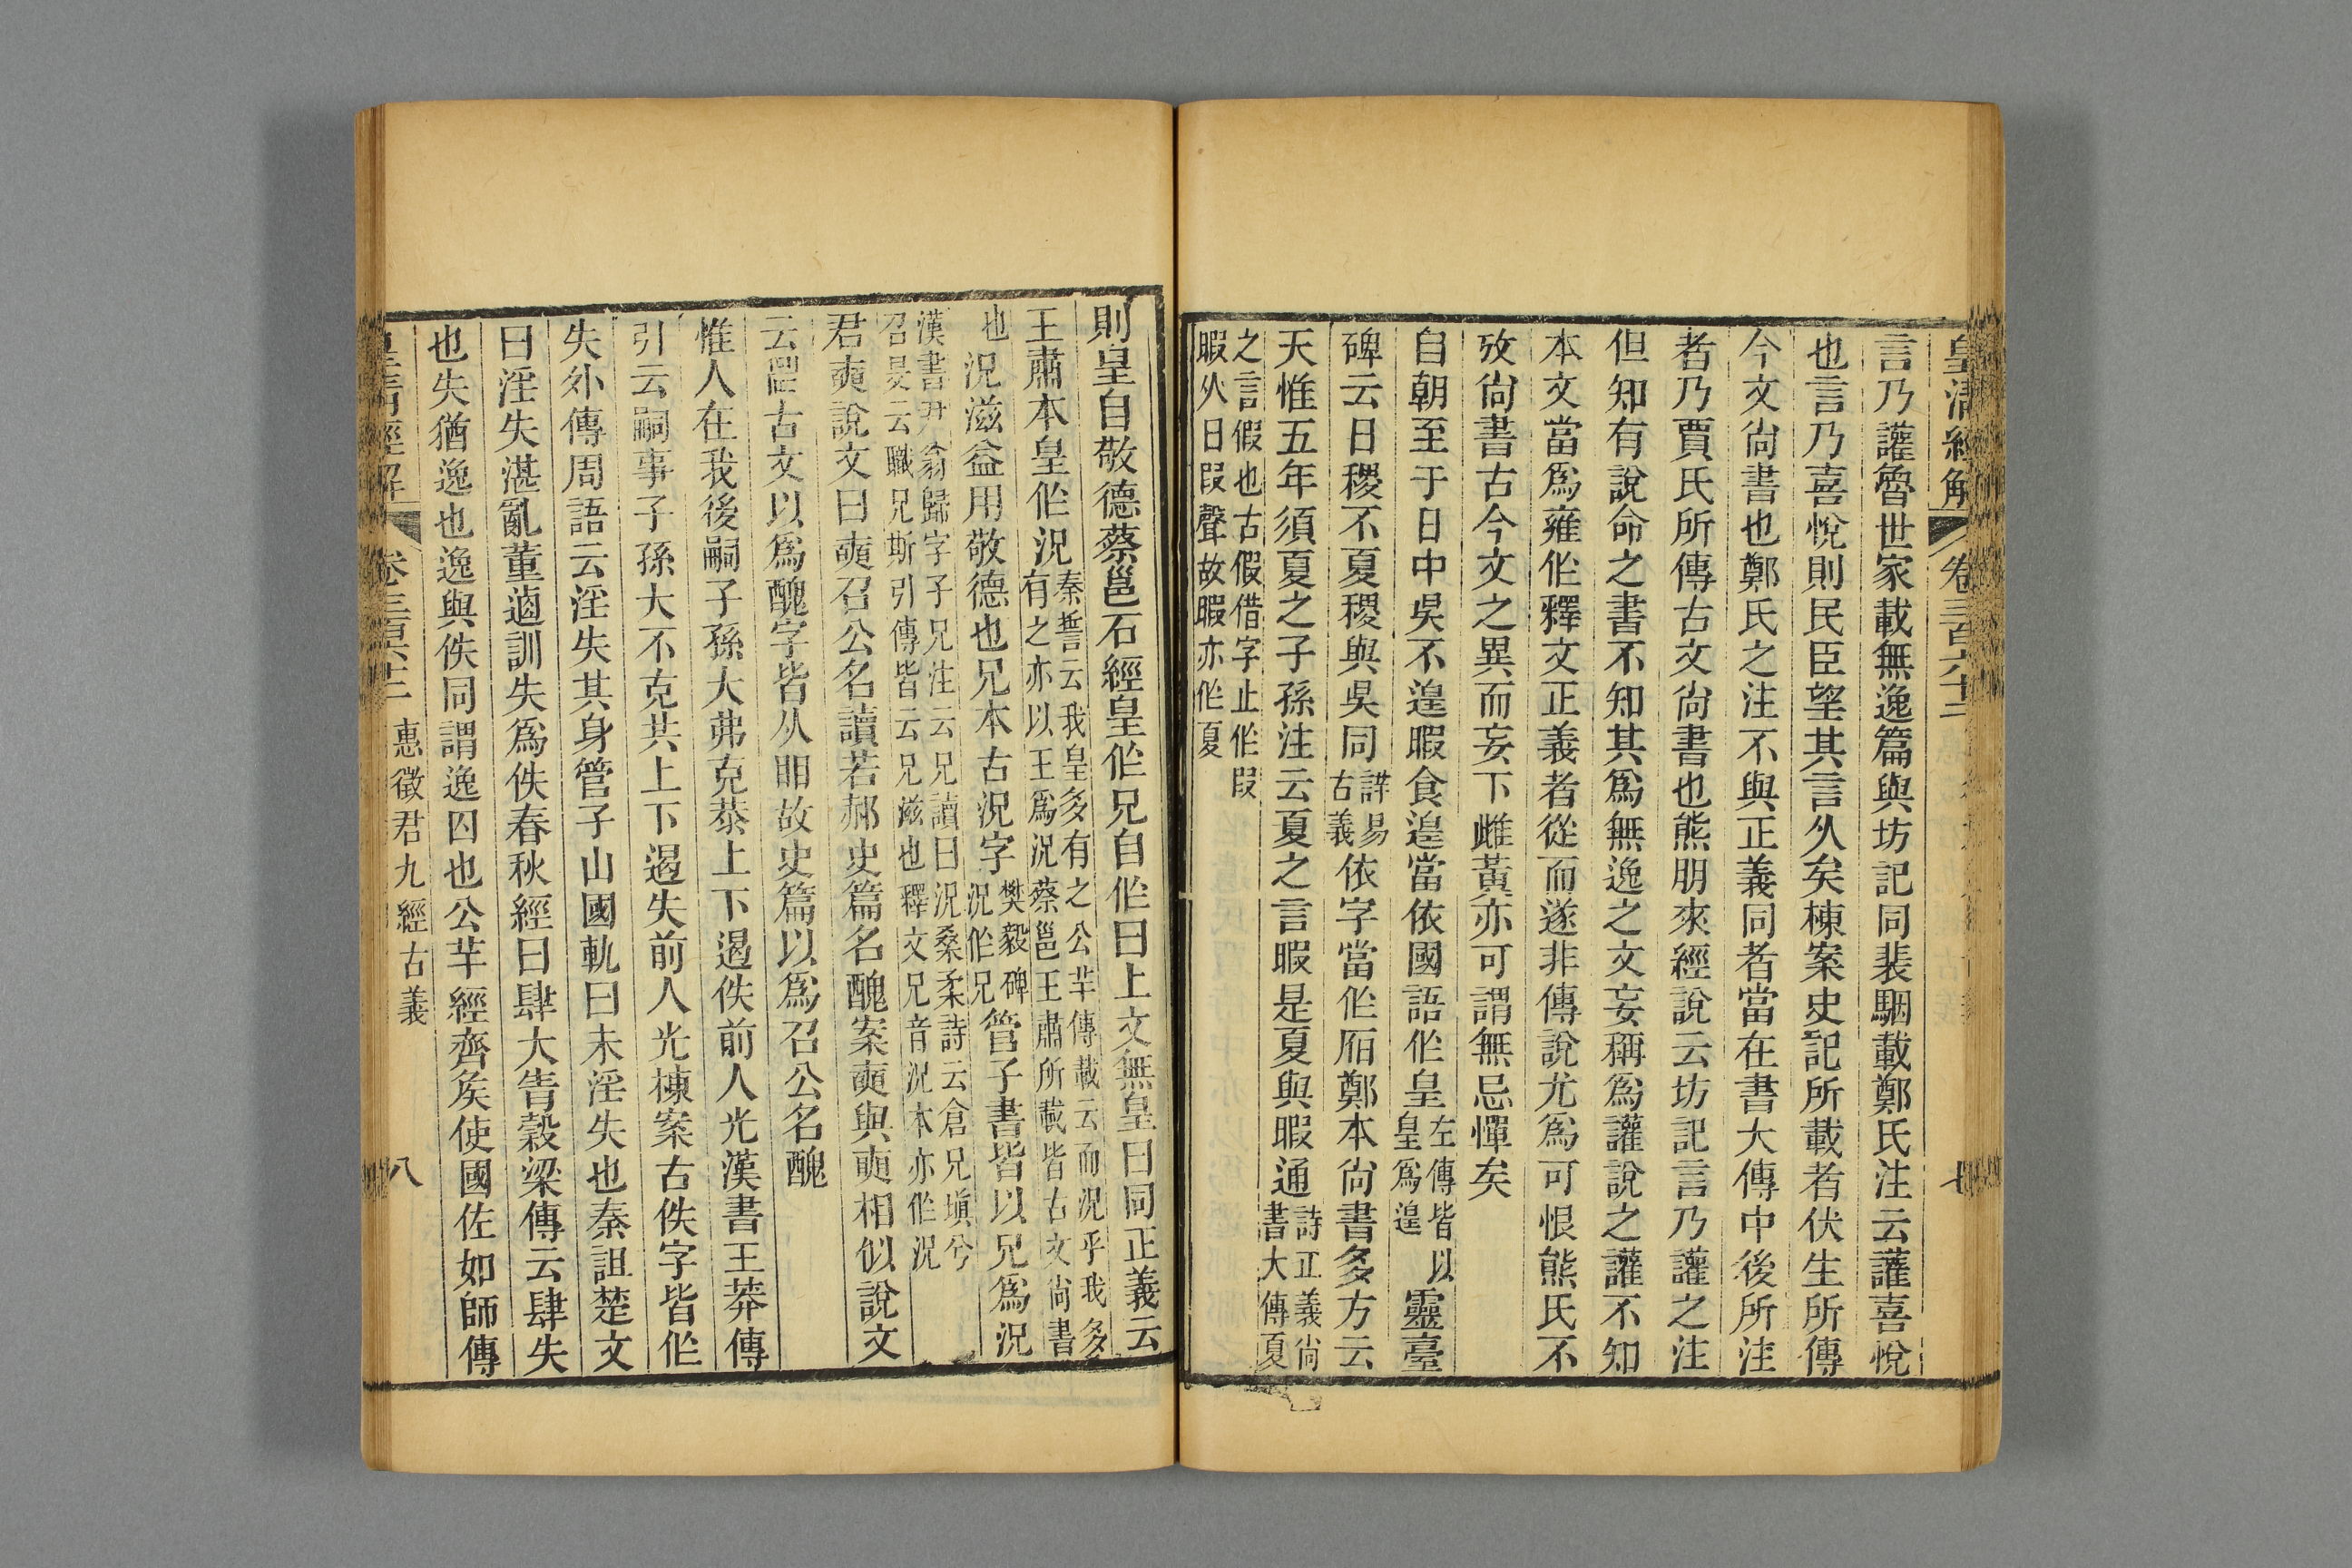 皇清經解 卷三百六十二 七
言乃讙魯世家載無逸篇與坊記同裴駰載鄭氏注云讙喜悅
也言乃喜悅則民臣望其言久矣棟案史記所載者伏生所傳
今文尙書也鄭氏之注不與正義同者當在書大傳中後所注
者乃賈氏所傳古文尙書也熊朋來經說云坊記言乃讙之注
但知有說命之書不知其爲無逸之文妄稱爲讙說之讙不知
本文當爲雍作釋文正義者從而遂非傳說尤爲可恨熊氏不
攷尙書古今文之異而妄下雌黃亦可謂無忌憚矣
自朝至于日中昃不遑暇食遑當依國語作皇左傳皆以皇爲遑靈臺
碑云日稷不夏稷與昃同詳易古義依字當作𣅔鄭本尙書多方云
天惟五年須夏之子孫注云夏之言暇是夏與暇通詩正義尙書大傳夏
之言假也古假借字止作叚
暇从日叚聲故暇亦作夏
則皇自敬德蔡邕石經皇作兄自作曰上文無皇曰同正義云
王肅本皇作況秦誓云我皇多有之公羊傳載云而況乎我多有之亦以王爲況蔡邕王肅所載皆古文尙書
也況滋益用敬德也兄本古況字樊毅碑況作兄管子書皆以兄爲況
漢書尹翁歸字子兄注云兄讀曰況桑柔詩云倉兄塡兮
召旻云職兄斯引傳皆云兄滋也釋文兄音況本亦作況
君奭說文曰奭召公名讀若郝史篇名醜案奭與奭相似說文
云𥈠古文以爲醜字皆从䀠故史篇以爲召公名醜
惟人在我後嗣子孫大弗克恭上下遏佚前人光漢書王莽傳
引云嗣事子孫大不克共上下遏失前人光棟案古佚字皆作
失外傳周語云淫失其身管子山國軌曰未淫失也秦詛楚文
曰淫失湛亂董逌訓失爲佚春秋經曰肆大眚穀梁傳云肆失
也失猶逸也逸與佚同謂逸囚也公羊經齊矦使國佐如師傳
皇清經解 卷三百六十二 惠徵君九經古義 八